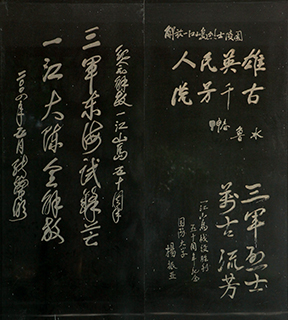 解放一江山岛烈士陵园
人民英雄
流芳千古
三军烈士
萬古流芳
一江山岛战役胜利
五十周年纪念
国防大学
纪念解放一江山岛五十周年
三军东海试锋芒
一江大陈全解放
二〇〇四年五月